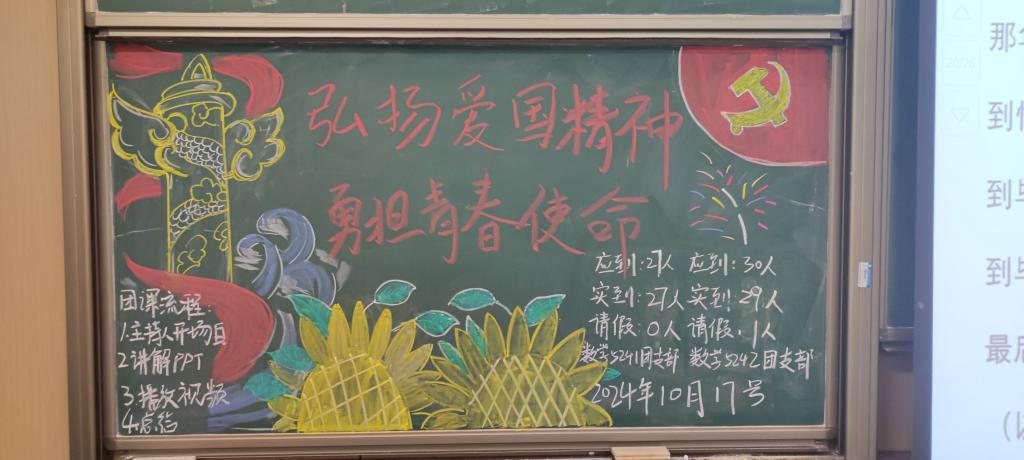 弘扬爱国精神
勇担青春使命
团课流程:
1.主持人开场白
2.讲解PPT
3.播放视频
4.总结
应到:27人 应到:30人
实到:27人 实到:29人
请假:0人 请假:1人
数学5241团支部 数学5242团支部
2024年10月17号
到
到毕
到毕
最后